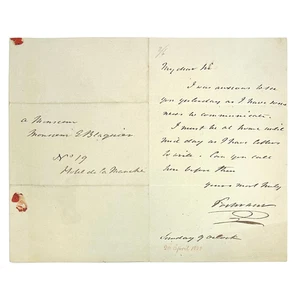 a Monsieur
Monsieur E Blaquiere
No 19
Hotel de la Manche
My dear Sir
I was anxious to see
you yesterday as I have some
news to communicate.
I must be at home until
mid day as I have letters
to write - Can you call
here before then
Yours most truly
Sunday 9 oclock